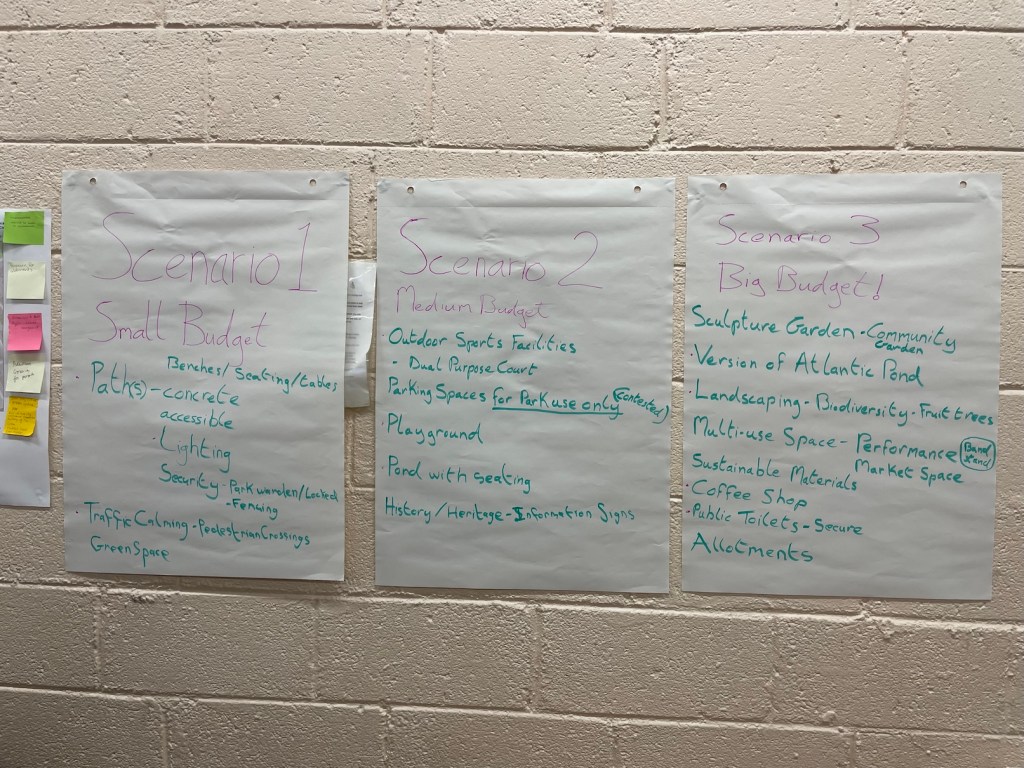 Scenario 1
Small Budget
Benches/Seating/tables
· Path(s) - concrete
accessible
· Lighting
Security - Park warden/Locked
- Fencing
· Traffic Calming - Pedestrian Crossings
GreenSpace
Scenario 2
Medium Budget
· Outdoor Sports Facilities
- Dual Purpose Court
Parking Spaces for Park use only (Contested)
· Playground
· Pond with seating
History/Heritage - Information Signs
Scenario 3
Big Budget!
Sculpture Garden - Community
Garden
· Version of Atlantic Pond
· Landscaping - Biodiversity - Fruit trees
Multi-use Space - Performance
Market Space
Band
Sustainable Materials
· Coffee Shop
· Public Toilets - Secure
Allotments